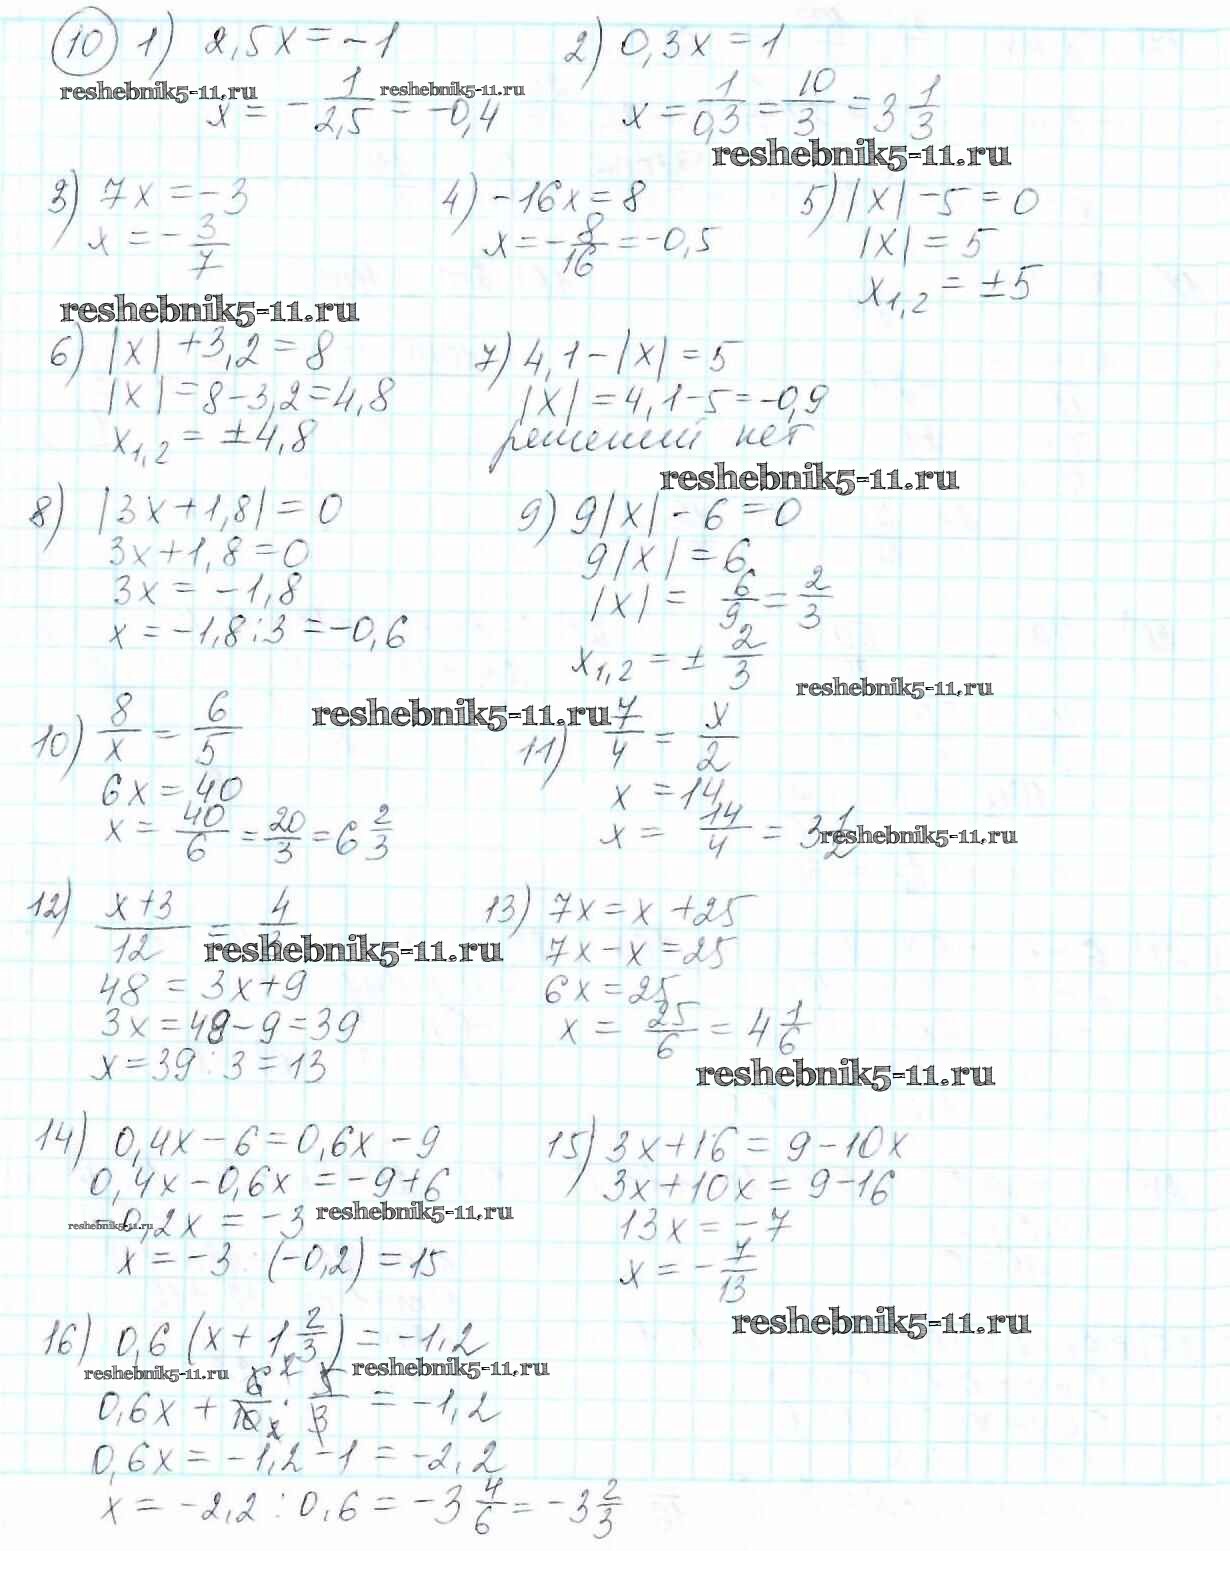 10) 1) 2,5x = -1   2) 0,3x = 1
reshebnik5-11.ru   reshebnik5-11.ru
x = -1/2,5 = -0,4   x = 1/0,3 = 10/3 = 3 1/3
reshebnik5-11.ru
3) 7x = -3   4) -16x = 8   5) |x| - 5 = 0
x = -3/7   x = -8/16 = -0,5   |x| = 5
x1,2 = ±5
reshebnik5-11.ru
6) |x| + 3,2 = 8   7) 4,1 - |x| = 5
|x| = 8 - 3,2 = 4,8   |x| = 4,1 - 5 = -0,9
x1,2 = ±4,8   решений нет
reshebnik5-11.ru
8) |3x + 1,8| = 0   9) 9|x| - 6 = 0
3x + 1,8 = 0   9|x| = 6
3x = -1,8   |x| = 6/9 = 2/3
x = -1,8 : 3 = -0,6   x1,2 = ± 2/3
reshebnik5-11.ru
reshebnik5-11.ru
10) 8/x = 6/5   11) 7/4 = x/2
6x = 40   x = 14
x = 40/6 = 20/3 = 6 2/3   x = 14/4 = 3 1/2
reshebnik5-11.ru
12) x+3/12 = 4/3   13) 7x = x + 25
reshebnik5-11.ru   7x - x = 25
48 = 3x + 9   6x = 25
3x = 48 - 9 = 39   x = 25/6 = 4 1/6
x = 39 : 3 = 13
reshebnik5-11.ru
14) 0,4x - 6 = 0,6x - 9   15) 3x + 16 = 9 - 10x
0,4x - 0,6x = -9 + 6   3x + 10x = 9 - 16
-0,2x = -3   13x = -7
reshebnik5-11.ru   reshebnik5-11.ru
x = -3 : (-0,2) = 15   x = -7/13
reshebnik5-11.ru
16) 0,6 (x + 1 2/3) = -1,2
reshebnik5-11.ru   reshebnik5-11.ru
0,6x + 6/10 · 5/3 = -1,2
0,6x = -1,2 - 1 = -2,2
x = -2,2 : 0,6 = -3 4/6 = -3 2/3